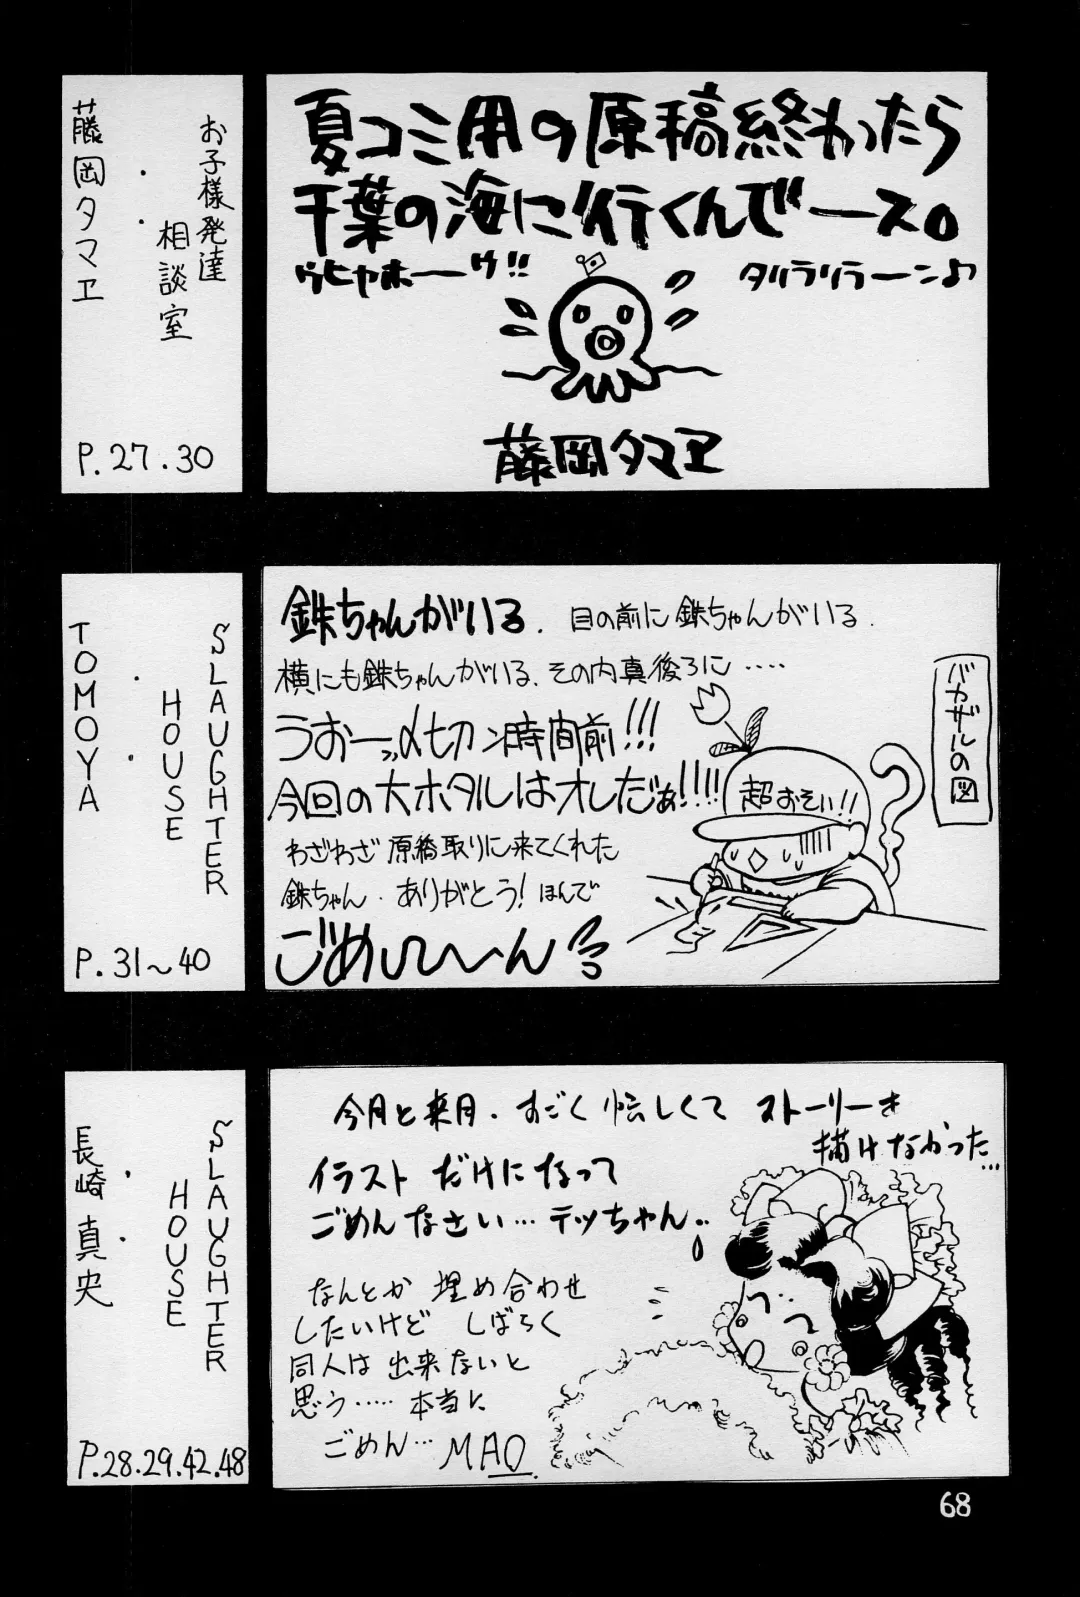 お子様発達
相談室
藤岡タマヱ
P.27.30
夏コミ用の原稿終わったら
千葉の海に行くんでーース。
ウヒャホーーゲ!!
タリラリラーーン♪
藤岡タマヱ
SLAUGHTER
HOUSE
TOMOYA
P.31~40
鉄ちゃんがいる. 目の前に鉄ちゃんがいる.
横にも鉄ちゃんがいる. その内真後ろに……
うおーッ〆切ン時間前!!!
今回の大ホタルはオレだぁ!!!!
わざわざ原稿取りに来てくれた
鉄ちゃん. ありがとう! ほんで
ごめしε〜〜ん
バカザルの図
超おそい!!
SLAUGHTER
HOUSE
長崎真央
P.28.29.42.48
今月と来月. すごく忙しくて ストーリーを
描けなかった…
イラスト だけになって
ごめんなさい… テッちゃん..
なんとか 埋め合わせ
したいけど しばらく
同人は出来ないと
思う…… 本当に
ごめん… MAO.
68